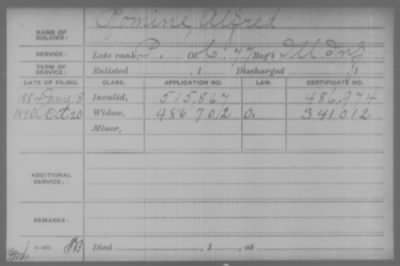 NAME OF SOLDIER: Pomine, Alfred
SERVICE: Late rank P. Co. C, 77 Reg't Ill Inf.
TERM OF SERVICE: Enlisted , 1 Discharged , 1
DATE OF FILING. CLASS. APPLICATION NO. LAW. CERTIFICATE NO.
1884 June 18 Invalid, 515,867 486,974
1890 Oct 20 Widow, 486702 O. 341012
Minor,
ADDITIONAL SERVICE:
REMARKS:
Died , 1 , at